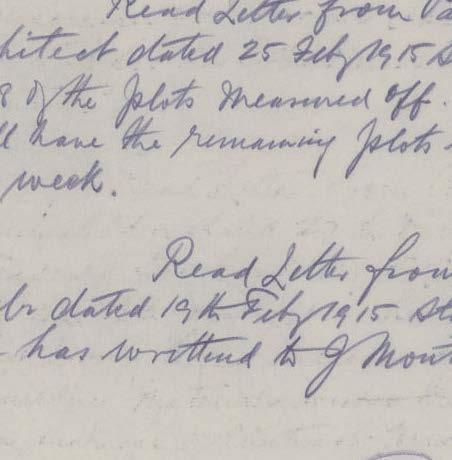 Read Letter from
hitect dated 25 Feby 1915 S
8 of the plots measured off.
ll have the remaining plots
week.
Read Letter from
dated 19th Feby 1915 Sta
has writtend to J Mont